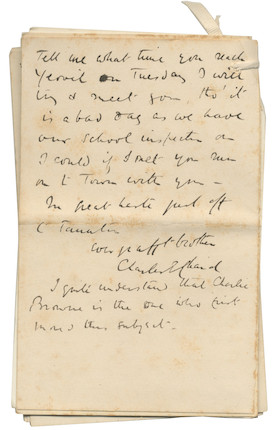 Tell me what time you reach
Yeovil on Tuesday I will
try & meet you tho' it
is a bad day as we have
our School inspector on
I could if I met you run
on to Town with you –
In great haste just off
to Taunton
Ever yr afft brother
Charles E
I quite understand that Charlie
Browne is the one who first
this subject –